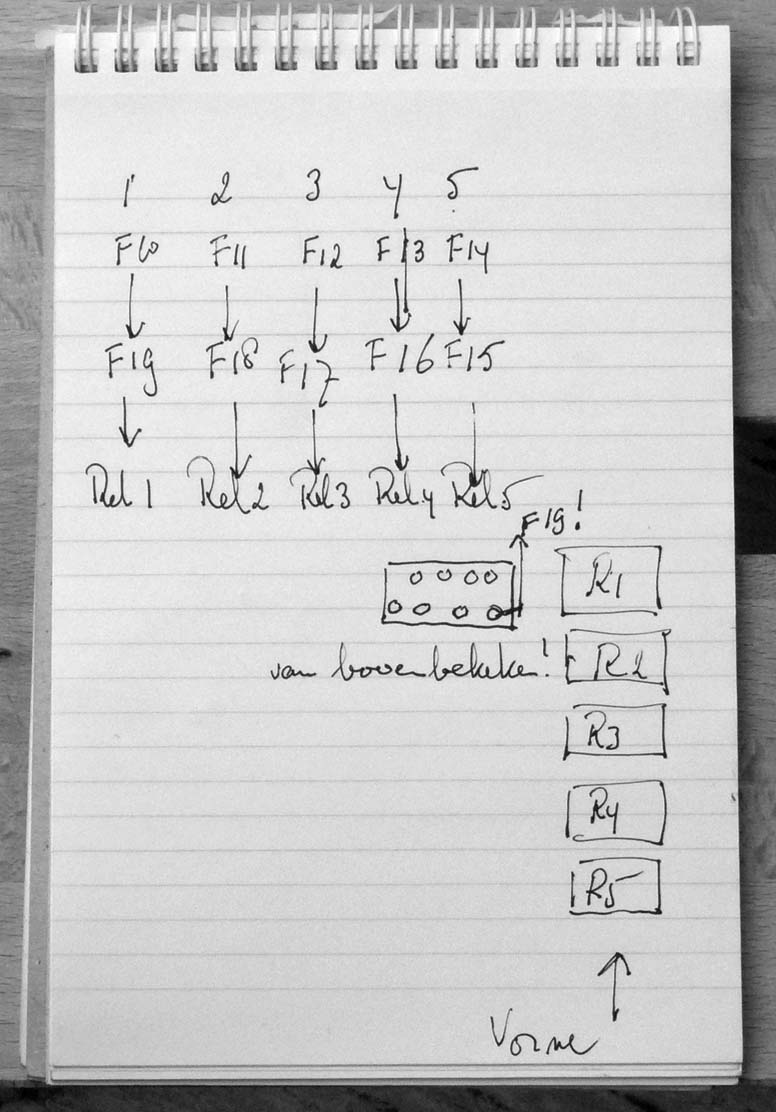 1 2 3 4 5
F10 F11 F12 F13 F14
F19 F18 F17 F16 F15
Rel 1 Rel 2 Rel 3 Rel 4 Rel 5
F19!
R1
van boven bekeken!
R2
R3
R4
R5
Vorne